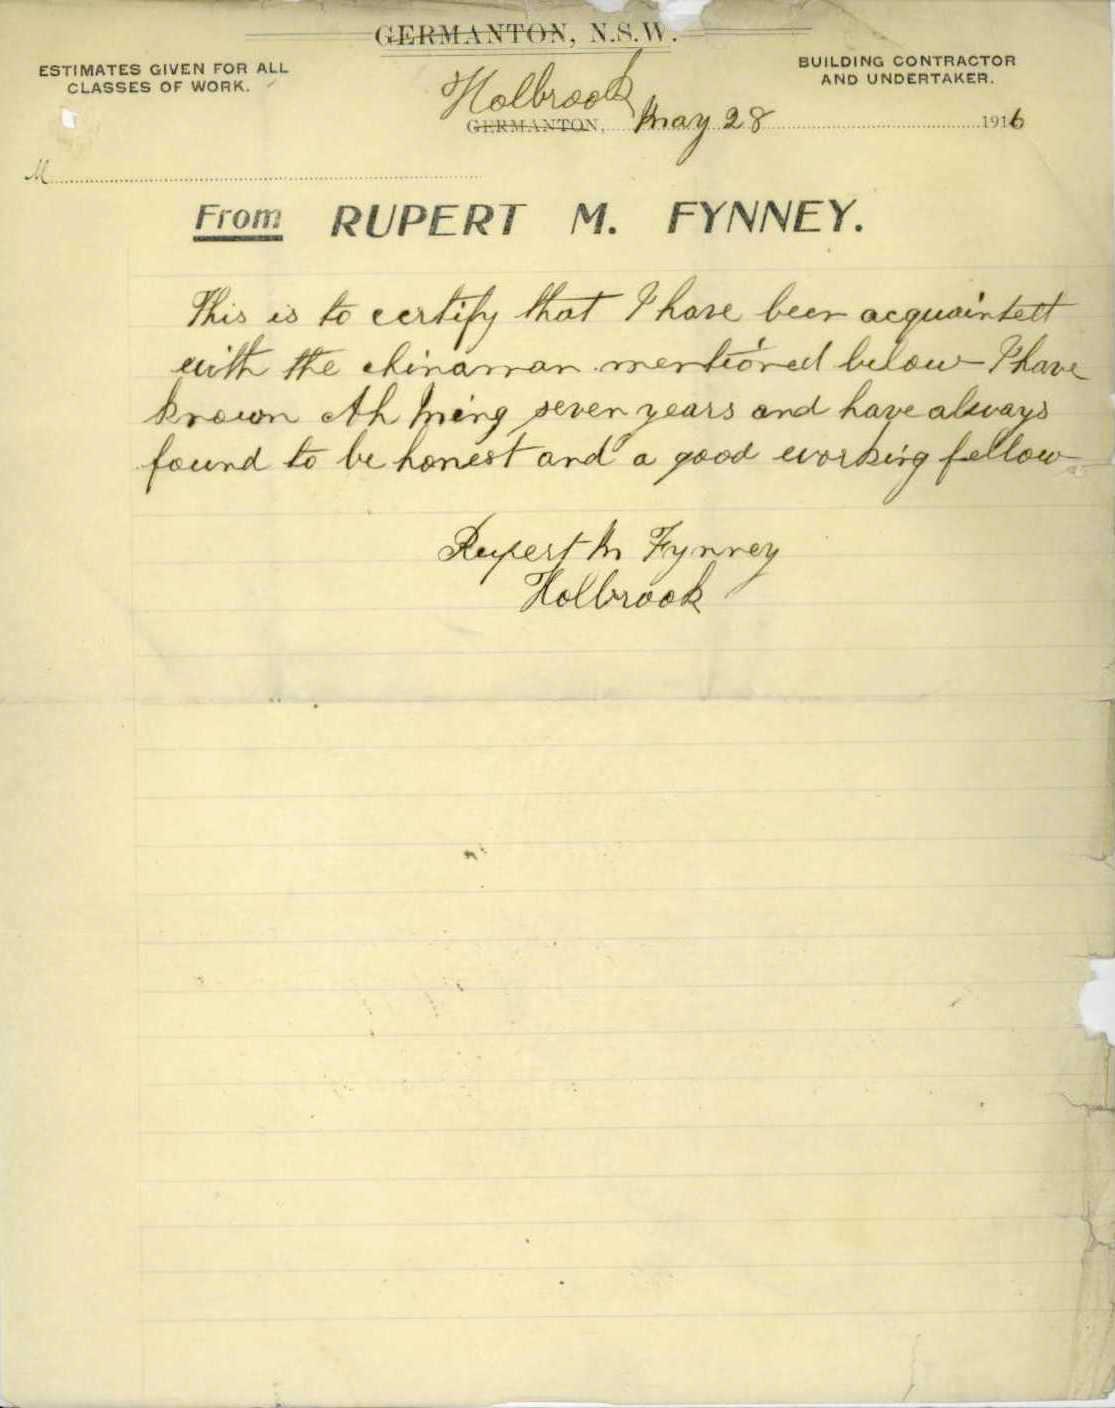 GERMANTON, N.S.W.
ESTIMATES GIVEN FOR ALL
CLASSES OF WORK.
BUILDING CONTRACTOR
AND UNDERTAKER.
Holbrook
GERMANTON, May 28 1916
M
From RUPERT M. FYNNEY.
This is to certify that I have been acquainted
with the chinaman mentioned below I have
known Ah Ming seven years and have always
found to be honest and a good working fellow
Rupert M Fynney
Holbrook